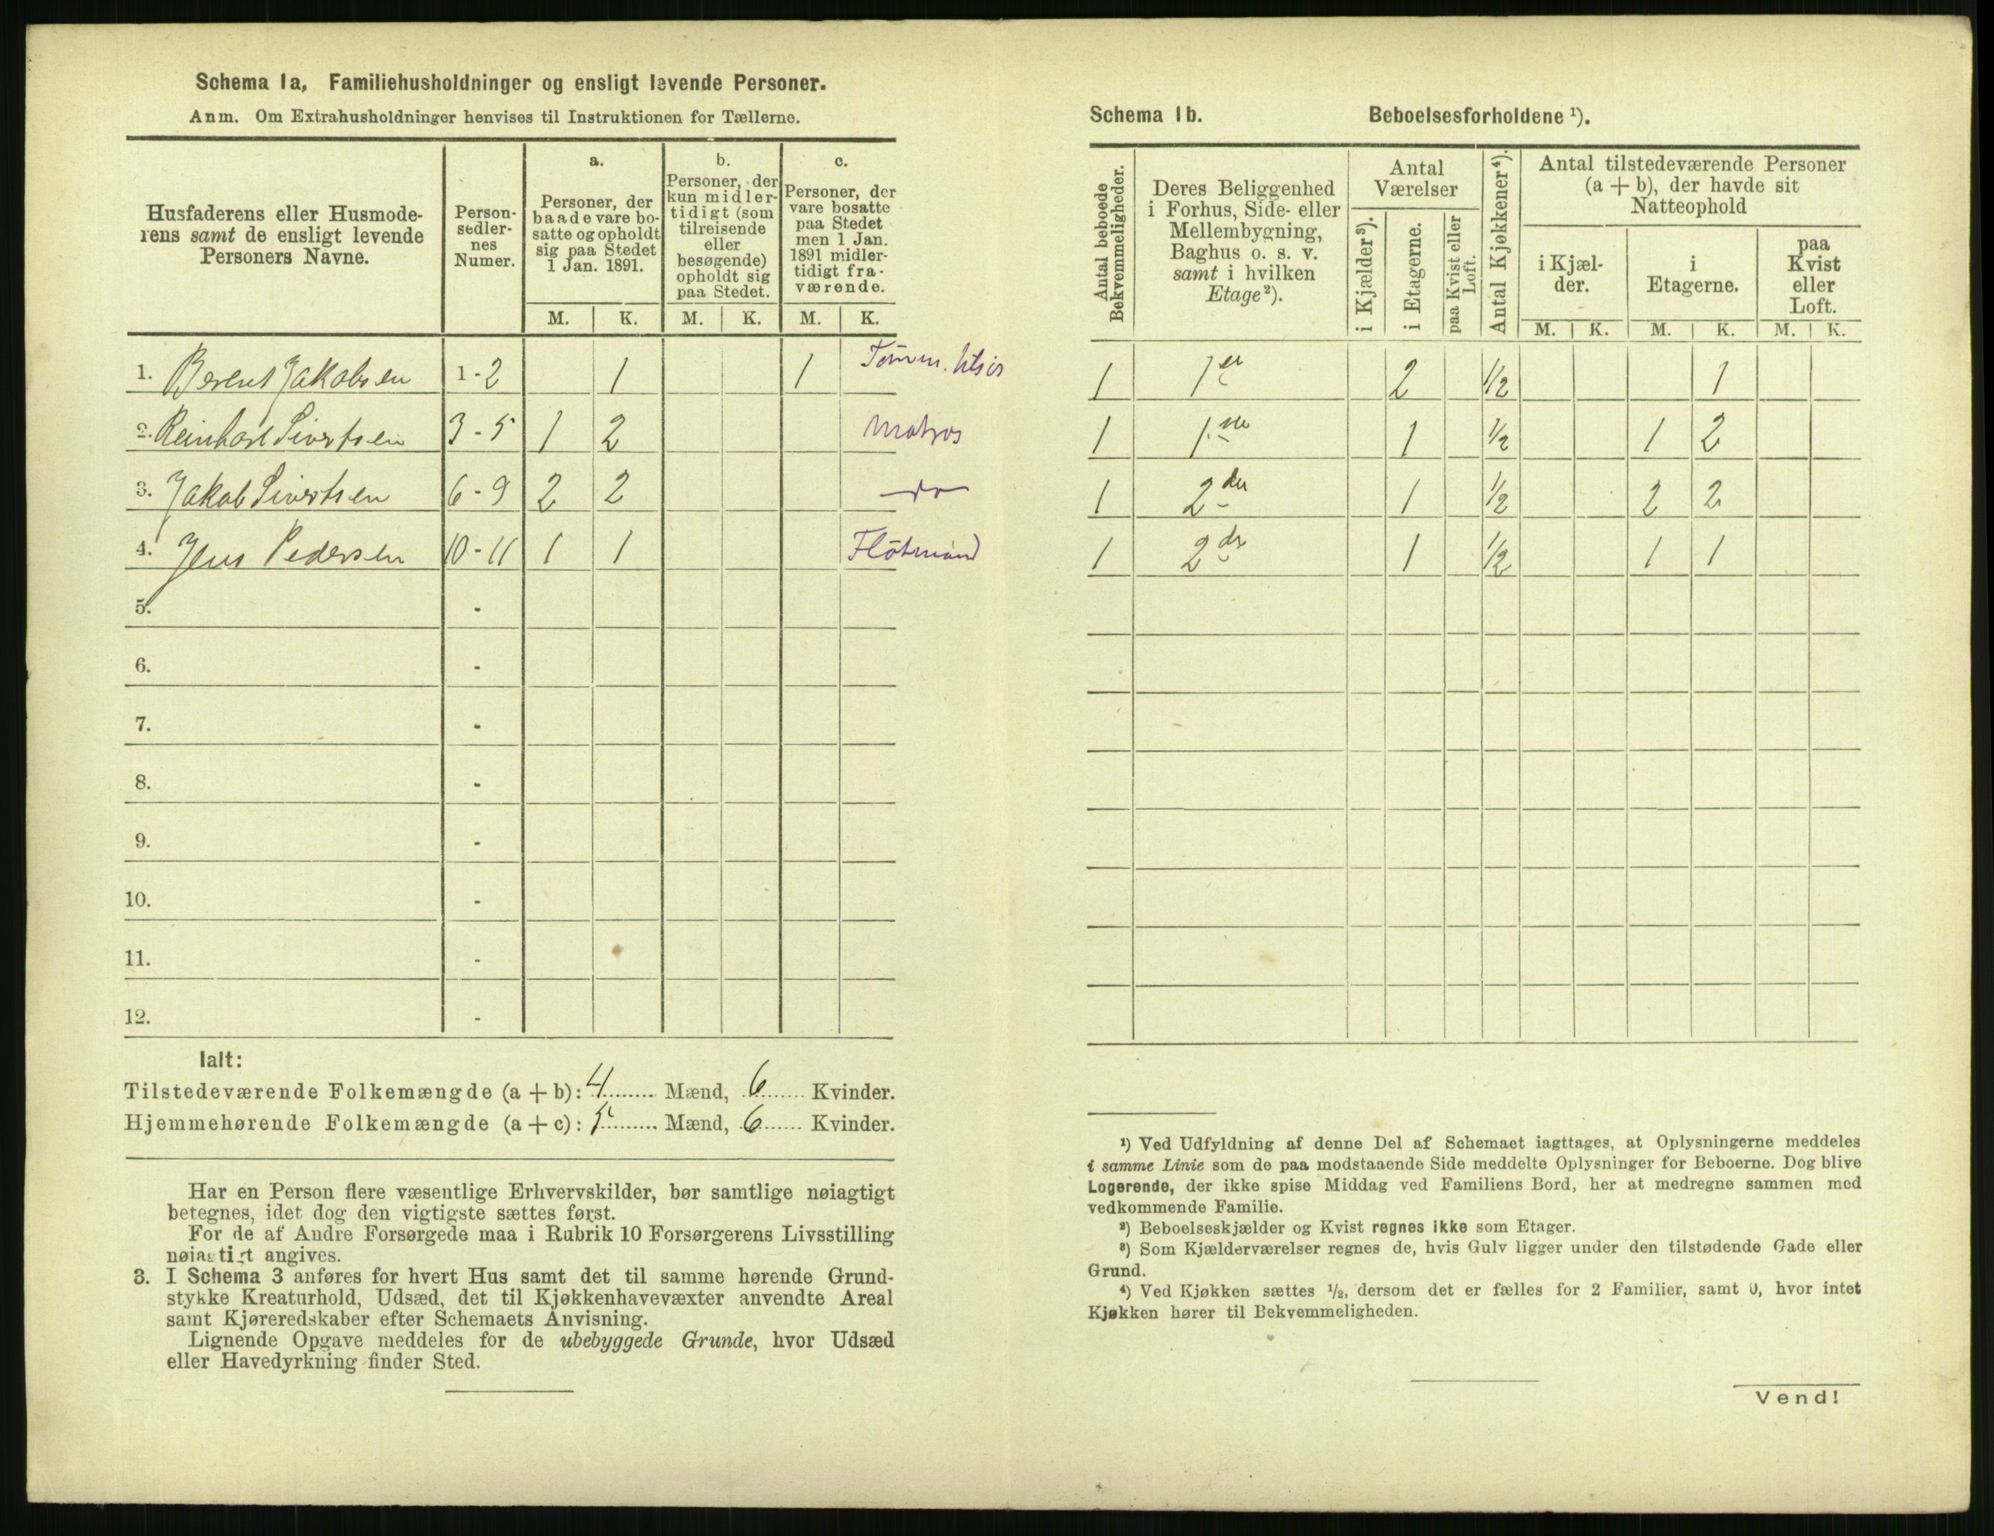 Schema 1a, Familiehusholdninger og ensligt levende Personer.
Anm. Om Extrahusholdninger henvises til Instruktionen for Tællerne.
Husfaderens eller Husmoderens samt de ensligt levende Personers Navne.
Personsedlernes Numer.
a. Personer, der baade vare bosatte og opholdt sig paa Stedet 1 Jan. 1891.
b. Personer, der kun midlertidigt (som tilreisende eller besøgende) opholdt sig paa Stedet.
c. Personer, der vare bosatte paa Stedet men 1 Jan. 1891 midlertidigt fraværende.
M. K. M. K. M. K.
1. Berent Jakobsen 1-2 1 1 Tømm.
2. Reinhart Sivertsen 3-5 1 2 Matros
3. Jakob Sivertsen 6-9 2 2 do
4. Jens Pedersen 10-11 1 1 Flötmand
5. -
6. -
7. -
8. -
9. -
10. -
11. -
12. -
Ialt:
Tilstedeværende Folkemængde (a + b): 4 Mænd, 6 Kvinder.
Hjemmehørende Folkemængde (a + c): 5 Mænd, 6 Kvinder.
Har en Person flere væsentlige Erhvervskilder, bør samtlige nøiagtigt
betegnes, idet dog den vigtigste sættes først.
For de af Andre Forsørgede maa i Rubrik 10 Forsørgerens Livsstilling
nøiagtigt angives.
3. I Schema 3 anføres for hvert Hus samt det til samme hørende Grund-
stykke Kreaturhold, Udsæd, det til Kjøkkenhavevæxter anvendte Areal
samt Kjøreredskaber efter Schemaets Anvisning.
Lignende Opgave meddeles for de ubebyggede Grunde, hvor Udsæd
eller Havedyrkning finder Sted.
Schema 1b. Beboelsesforholdene ¹).
Antal beboede Bekvemmeligheder.
Deres Beliggenhed i Forhus, Side- eller Mellembygning, Baghus o. s. v. samt i hvilken Etage²).
Antal Værelser
i Kjælder³).
i Etagerne.
paa Kvist eller Loft.
Antal Kjøkkener⁴).
Antal tilstedeværende Personer (a + b), der havde sit Natteophold
i Kjælder.
i Etagerne.
paa Kvist eller Loft.
M. K. M. K. M. K.
1 1 2 ½ 1
1 1 1 ½ 1 2
1 2den 1 ½ 2 2
1 2den 1 ½ 1 1
¹) Ved Udfyldning af denne Del af Schemaet iagttages, at Oplysningerne meddeles
i samme Linie som de paa modstaaende Side meddelte Oplysninger for Beboerne. Dog blive
Logerende, der ikke spise Middag ved Familiens Bord, her at medregne sammen med
vedkommende Familie.
²) Beboelseskjælder og Kvist regnes ikke som Etager.
³) Som Kjælderværelser regnes de, hvis Gulv ligger under den tilstødende Gade eller
Grund.
⁴) Ved Kjøkken sættes ½, dersom det er fælles for 2 Familier, samt 0, hvor intet
Kjøkken hører til Bekvemmeligheden.
Vend!